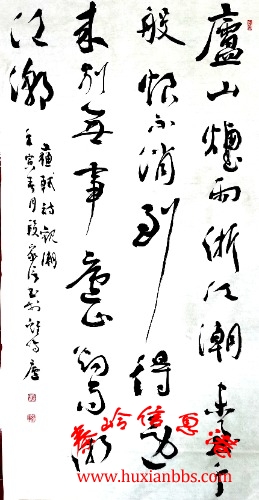 廬山煙雨浙江潮未至千
般恨不消到得還
來別無事廬山煙雨浙
江潮
蘇軾詩觀潮
秦岭信息
www.huxianbbs.com